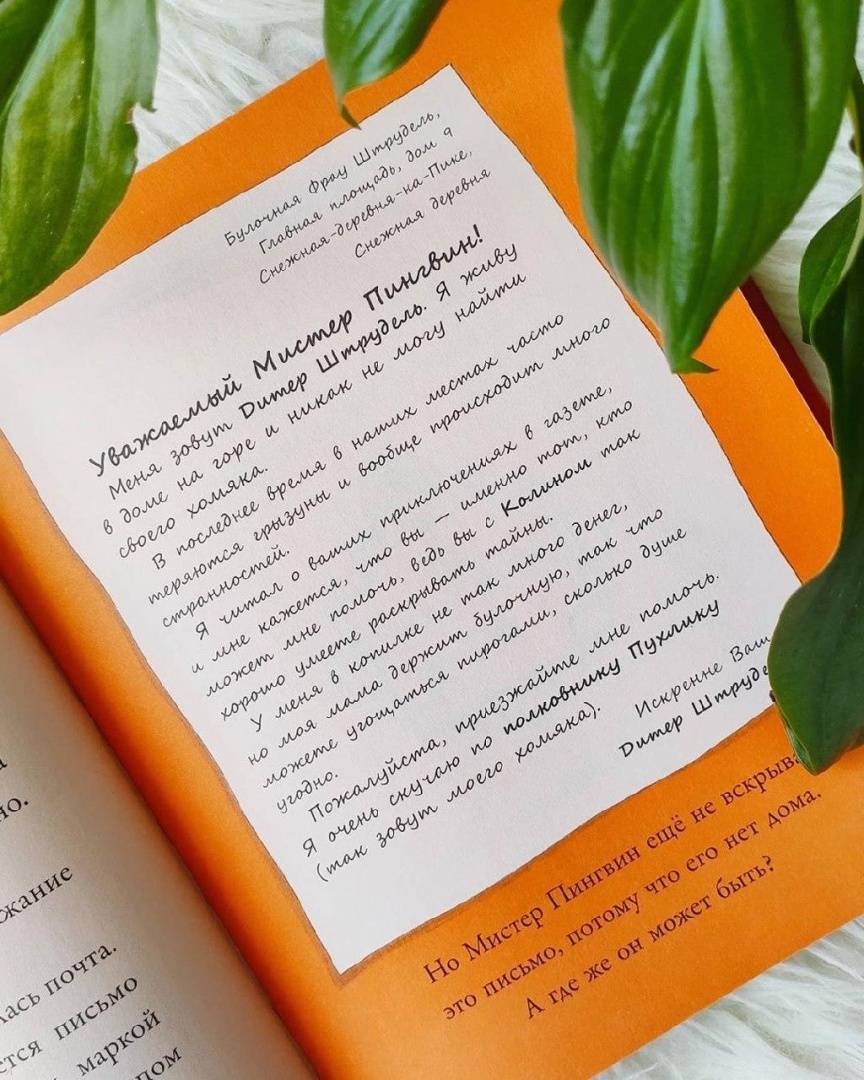 Булочная Фрау Штрудель,
Главная площадь, дом 9
Снежная-деревня-на-Пике,
Снежная деревня
Уважаемый Мистер Пингвин!
Меня зовут Дитер Штрудель. Я живу
в доме на горе и никак не могу найти
своего хомяка.
В последнее время в наших местах часто
теряются грызуны и вообще происходит много
странностей.
Я читал о ваших приключениях в газете,
и мне кажется, что вы — именно тот, кто
может мне помочь, ведь вы с Колином так
хорошо умеете раскрывать тайны.
У меня в копилке не так много денег,
но моя мама держит булочную, так что
можете угощаться пирогами, сколько душе
угодно.
Пожалуйста, приезжайте мне помочь.
Я очень скучаю по полковнику Пухлику
(так зовут моего хомяка).
Искренне Ваш
Дитер Штруде
Но Мистер Пингвин ещё не вскрыва
это письмо, потому что его нет дома.
А где же он может быть?
но.
жание
лась почта.
ется письмо
маркой
пом